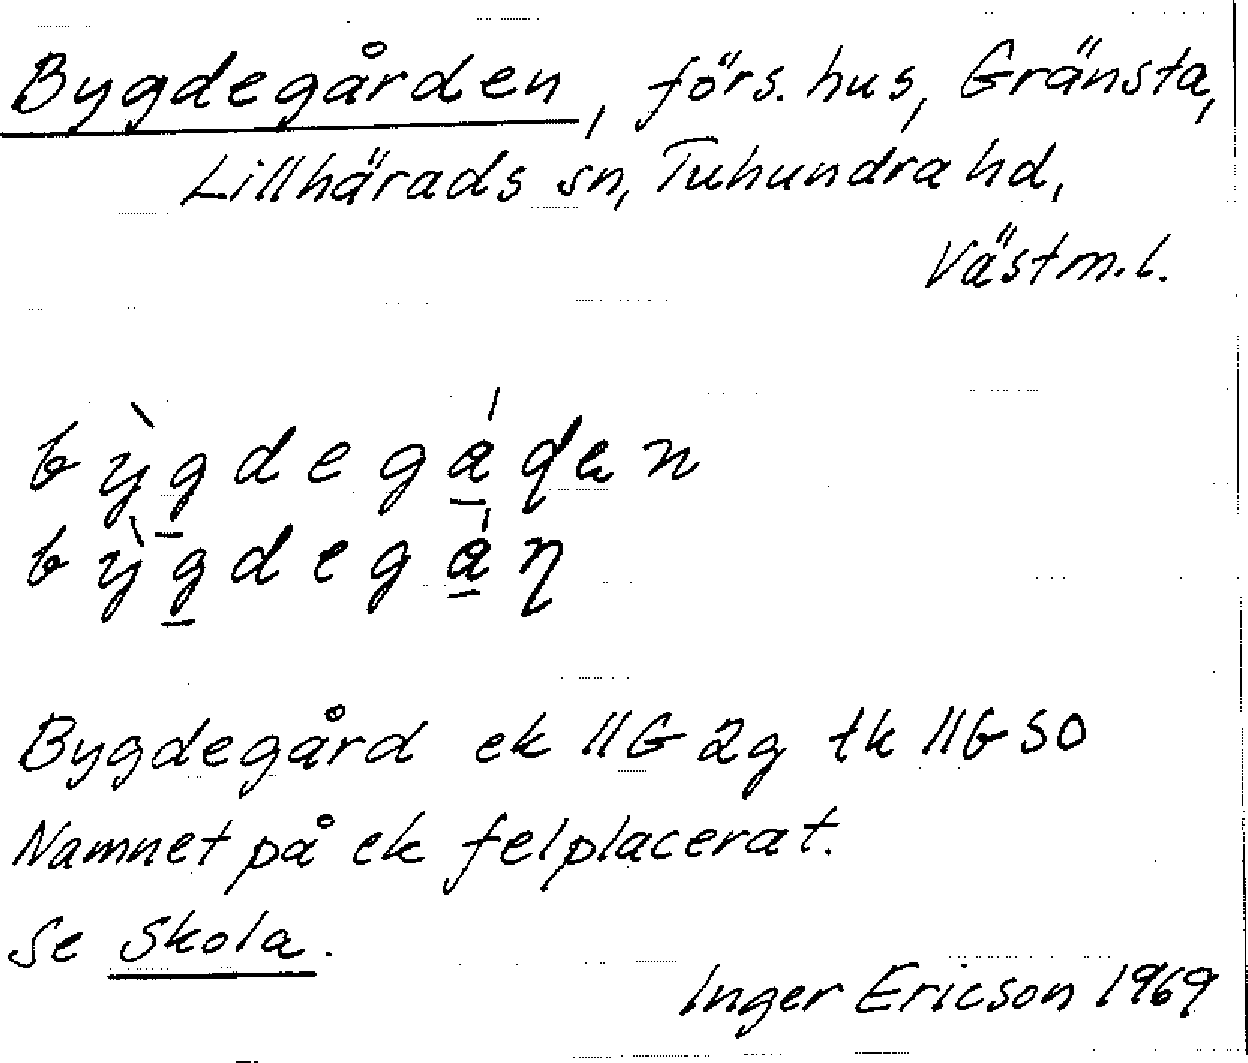 Bygdegården, förs. hus, Gränsta,
Lillhärads sn, Tuhundra hd,
Västm. l.
bỳgdegáɖen
bỳgdegáɳ
Bygdegård ek 11G 2g tk 11G SO
Namnet på ek felplacerat.
Se Skola.
Inger Ericson 1969